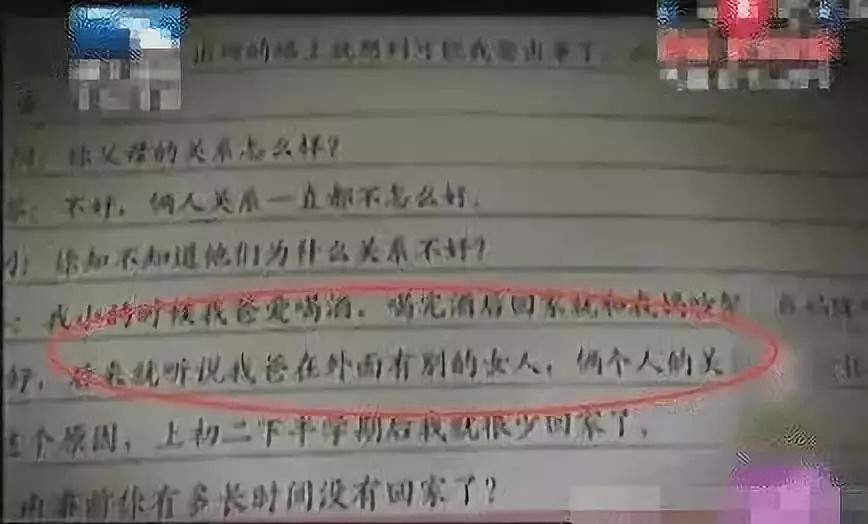 出现的晚上就想到可能我爸出事了
问: 你父母的关系怎么样?
答: 不好, 俩人关系一直都不怎么好.
你知不知道他们为什么关系不好?
: 我小时候我爸爱喝酒, 喝完酒后回家就和我妈吵架
好, 后来就听说我爸在外面有别的女人, 俩个人的关
个原因, 上初二下半学期后我就很少回家了.
你有多长时间没有回家了?